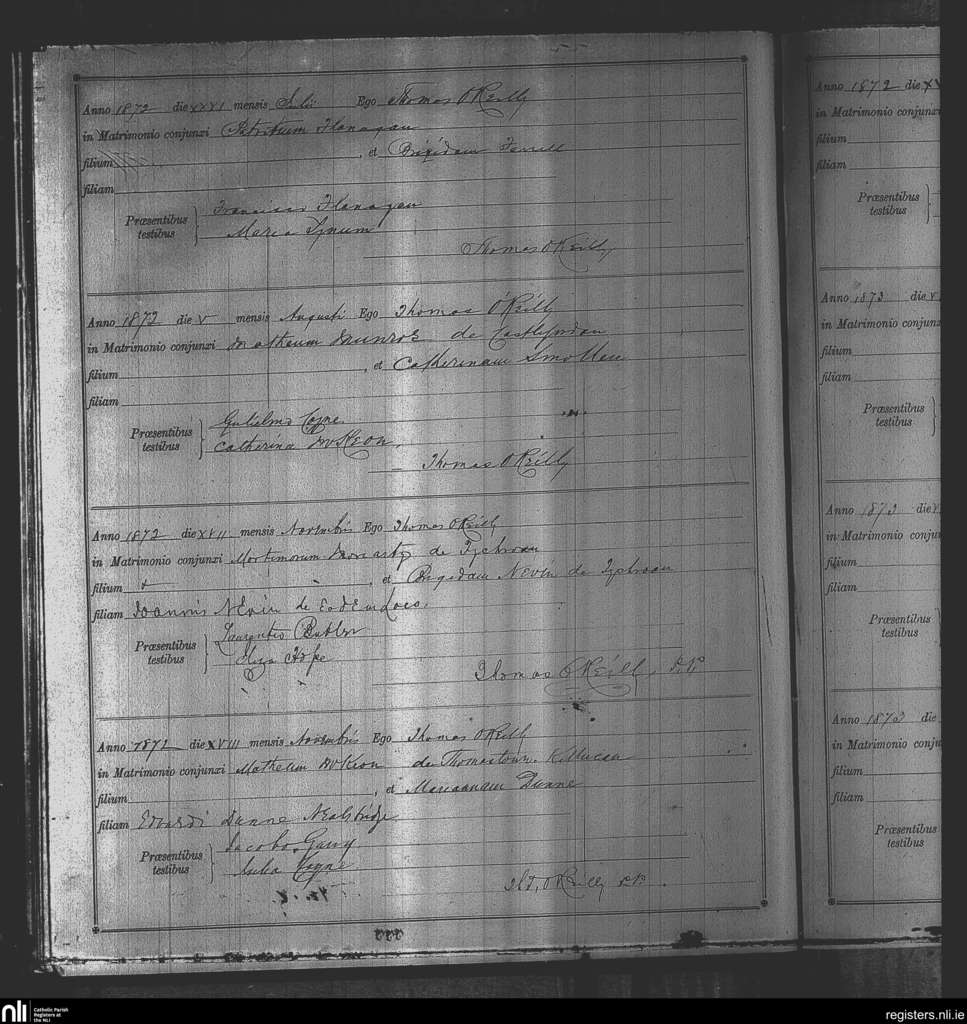 Anno 1872 die XXXI mensis Julii Ego Thomas O'Reilly
in Matrimonio conjunxi Patritium Flanagan
filium , et Brigidam Ferrell
filiam
Præsentibus testibus } Francisco Flanagan
Maria
Thomas O'Reilly
Anno 1872 die V mensis Augusti Ego Thomas O'Reilly
in Matrimonio conjunxi Matheum Munroe de
filium , et Catherinam Smollen
filiam
Præsentibus testibus } Gulielmo Coyne
Catherina McKeon
Thomas O'Reilly
Anno 1872 die XVII mensis Novembris Ego Thomas O'Reilly
in Matrimonio conjunxi Mortimorum Moriarty de
filium , et Brigidam Nevin de
filiam Joannis Nevin de Eodem Loco
Præsentibus testibus } Laurentio Butler
Eliza Hope
Thomas O'Reilly, P.P.
Anno 1872 die XVIII mensis Novembris Ego Thomas O'Reilly
in Matrimonio conjunxi Matheum McKeon de Thomastown Killucan
filium , et Mariannam Dunne
filiam Edvardi Dunne
Præsentibus testibus } Jacobo Garry
Julia Coyne
O'Reilly P.P.
Anno 1872 die
in Matrimonio conjunx
filium
filiam
Præsentibus testibus }
Anno 1873 die V
in Matrimonio conjunx
filium
filiam
Præsentibus testibus }
Anno 1873 die
in Matrimonio conju
filium
filiam
Præsentibus testibus
Anno 1873 die
in Matrimonio conju
filium
filiam
Præsentibus testibus
nli Catholic Parish Registers at the NLI
registers.nli.ie